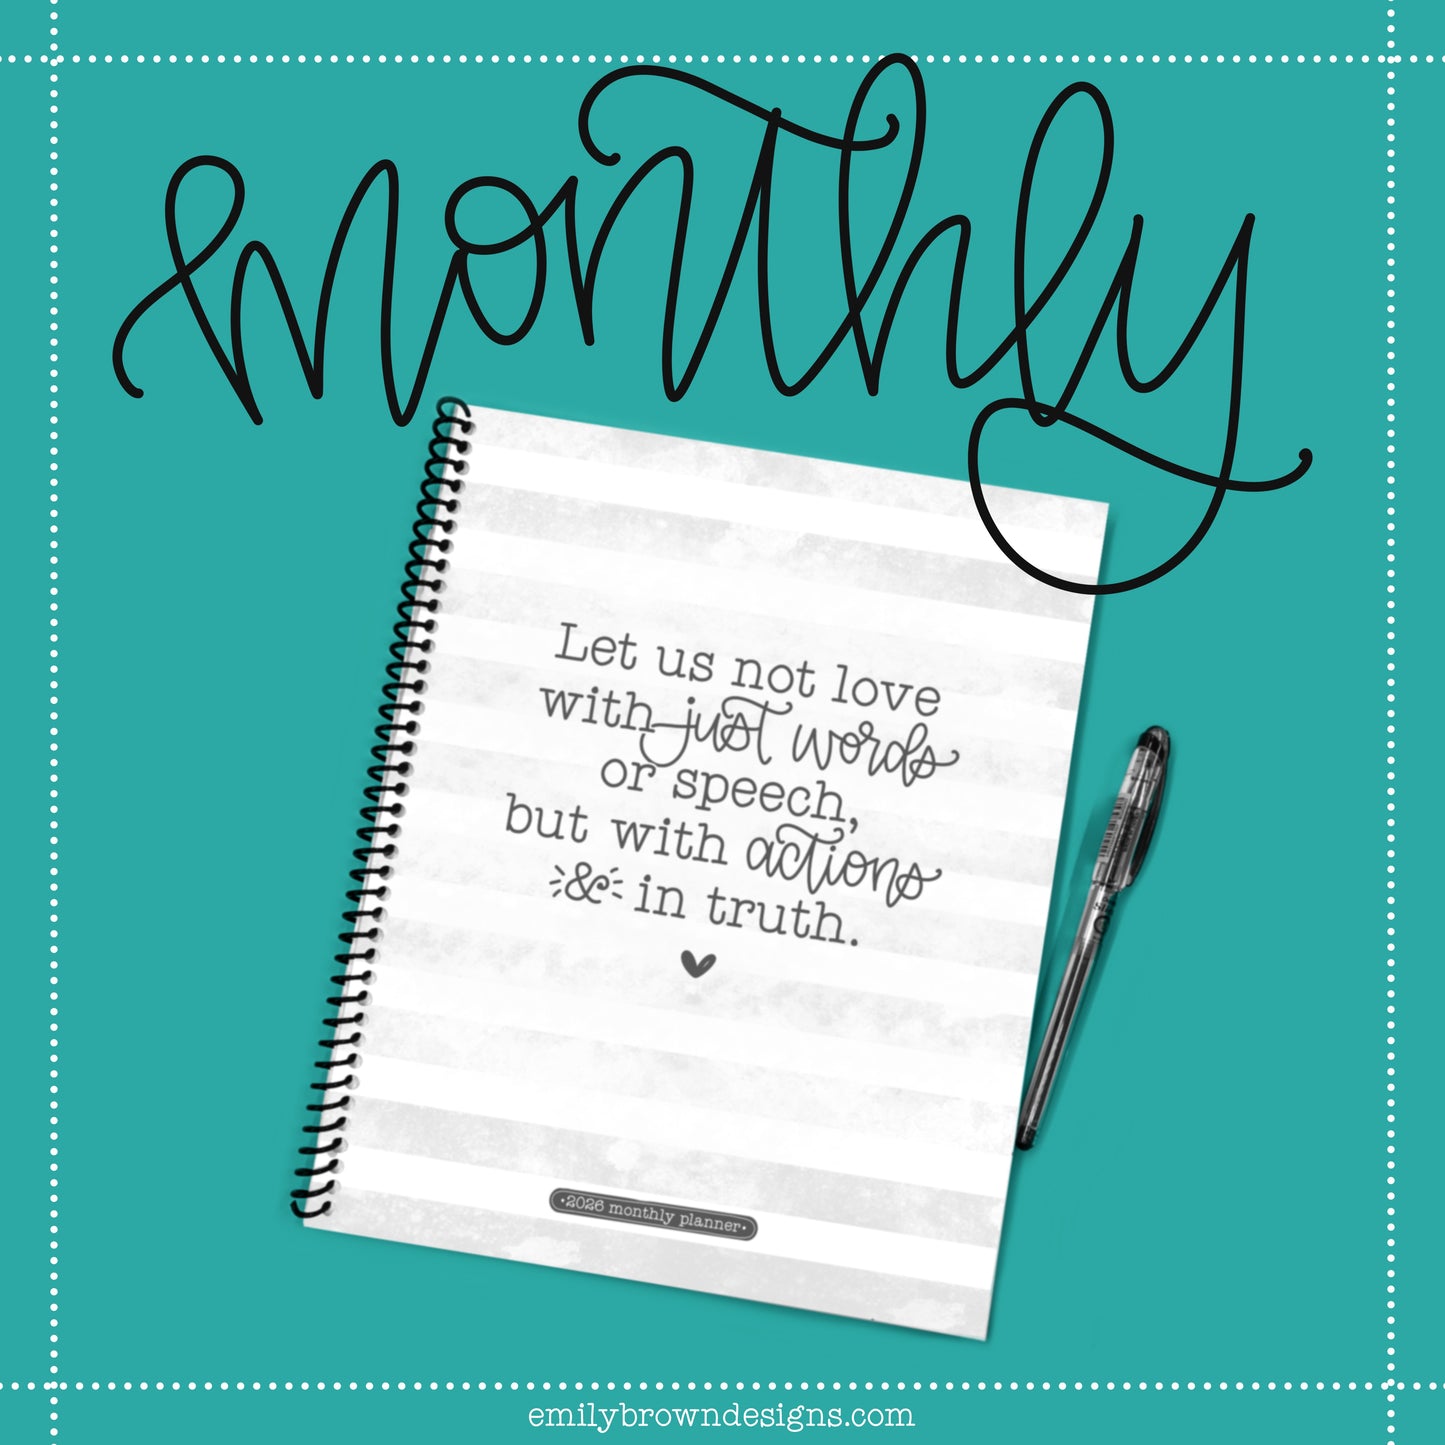 monthly
Let us not love
with just words
or speech,
but with actions
& in truth.
•2026 monthly planner•
emilybrowndesigns.com